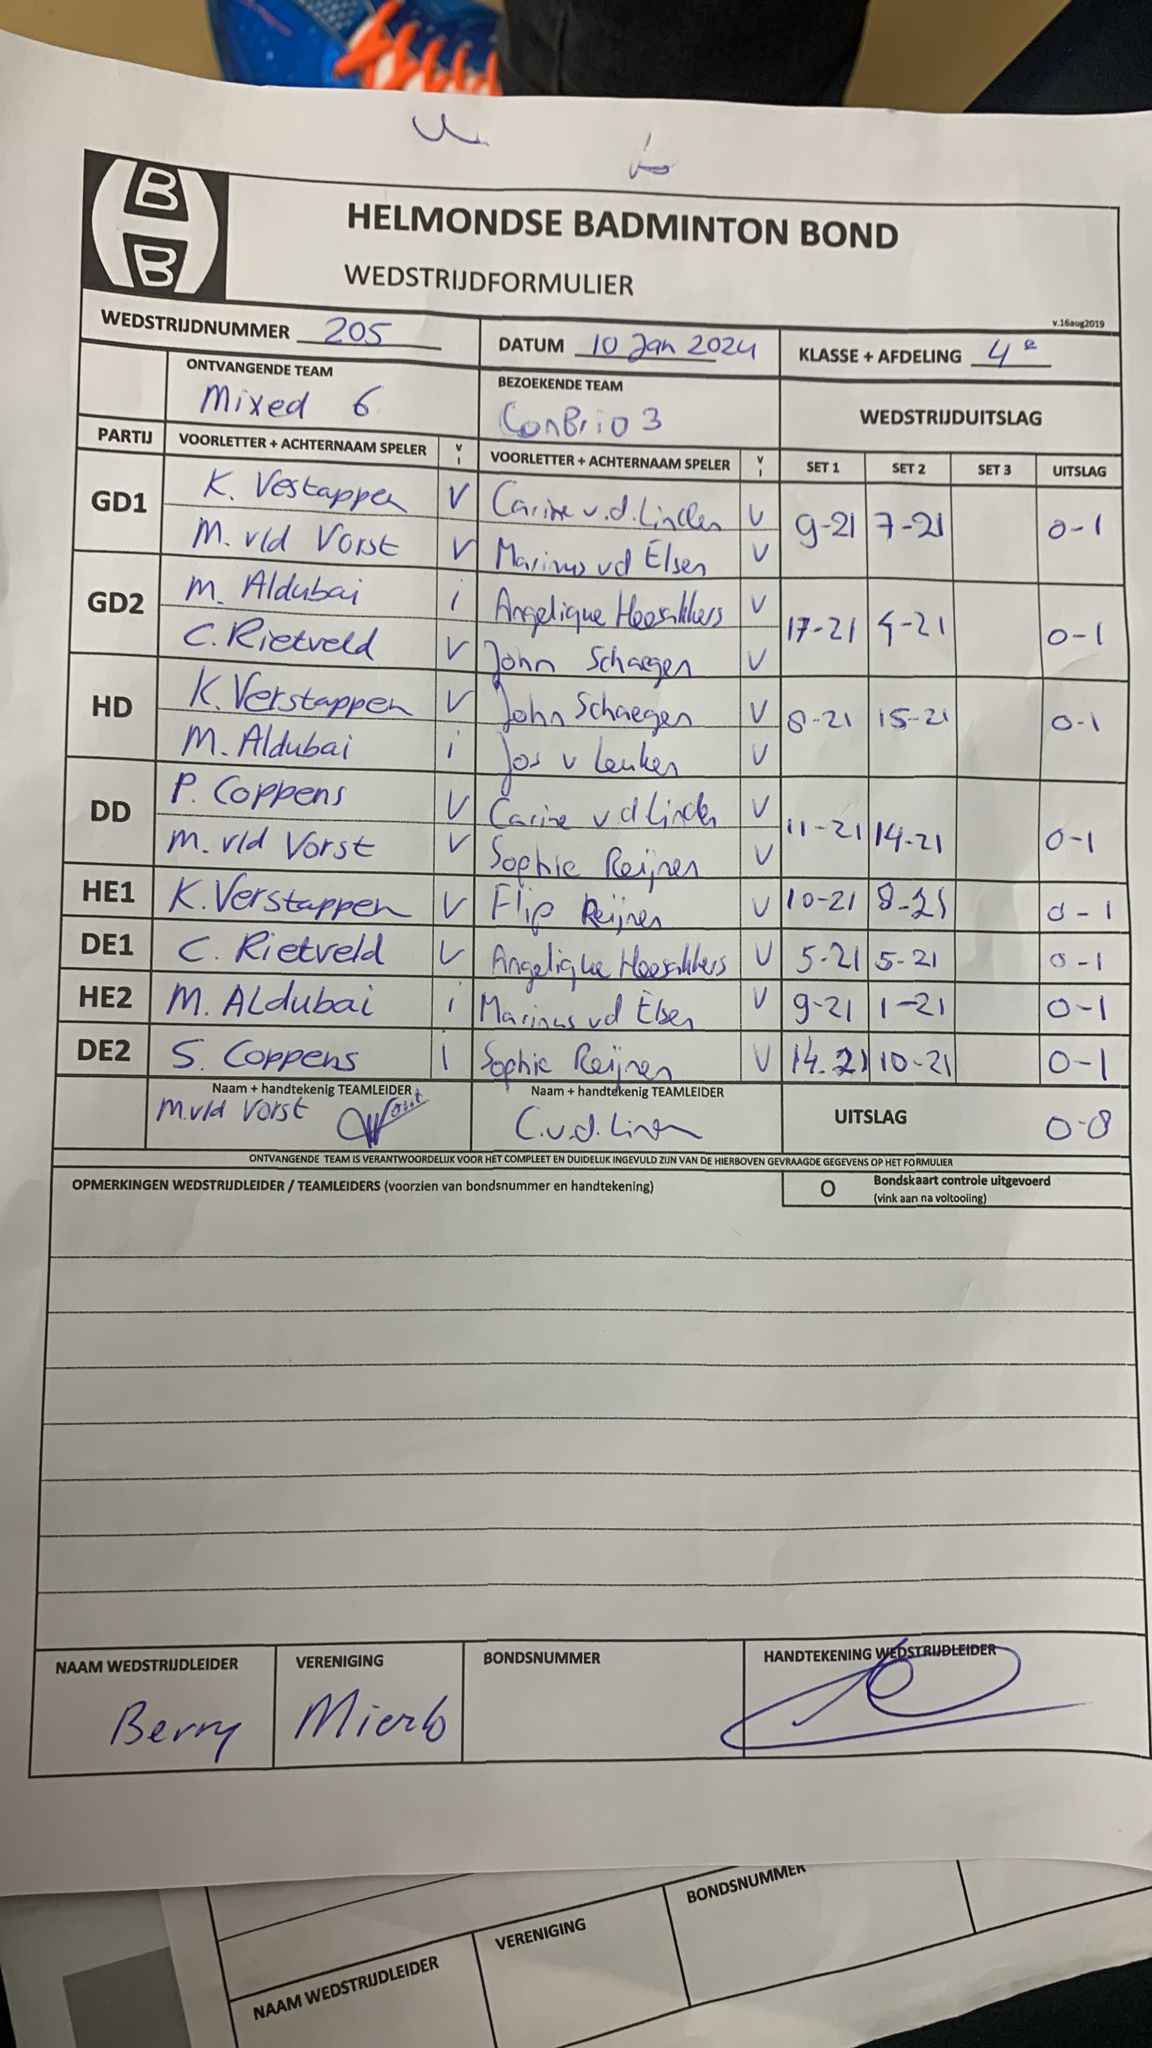 HELMONDSE BADMINTON BOND
WEDSTRIJDFORMULIER
v.16aug2019
WEDSTRIJDNUMMER 205 DATUM 10 Jan 2024 KLASSE + AFDELING 4e
ONTVANGENDE TEAM BEZOEKENDE TEAM WEDSTRIJDUITSLAG
Mixed 6 ConBrio 3
PARTIJ VOORLETTER + ACHTERNAAM SPELER V I VOORLETTER + ACHTERNAAM SPELER V I SET 1 SET 2 SET 3 UITSLAG
GD1 K. Vestappen V Carine v.d. Linden V 9-21 7-21 0-1
M. v/d Vorst V Marinus vd Elsen V
GD2 M. Aldubai i Angelique Hoosakkers V 17-21 4-21 0-1
C. Rietveld V John Schaegen V
HD K. Verstappen V John Schaegen V 8-21 15-21 0-1
M. Aldubai i Jos v Leuken V
DD P. Coppens V Carine v d Linden V 11-21 14-21 0-1
M. v/d Vorst V Sophie Reijnen V
HE1 K. Verstappen V Flip Reijnen V 10-21 8-21 0-1
DE1 C. Rietveld V Angelique Hoosakkers V 5-21 5-21 0-1
HE2 M. ALdubai i Marinus vd Elsen V 9-21 1-21 0-1
DE2 S. Coppens i Sophie Reijnen V 14.21 10-21 0-1
Naam + handtekenig TEAMLEIDER Naam + handtekenig TEAMLEIDER UITSLAG 0-8
M.v/d Vorst C.v.d. Linden
ONTVANGENDE TEAM IS VERANTWOORDELIJK VOOR HET COMPLEET EN DUIDELIJK INGEVULD ZIJN VAN DE HIERBOVEN GEVRAAGDE GEGEVENS OP HET FORMULIER
OPMERKINGEN WEDSTRIJDLEIDER / TEAMLEIDERS (voorzien van bondsnummer en handtekening) O Bondskaart controle uitgevoerd
(vink aan na voltooling)
NAAM WEDSTRIJDLEIDER VERENIGING BONDSNUMMER HANDTEKENING WEDSTRIJDLEIDER
Berry Mierlo
NAAM WEDSTRIJDLEIDER VERENIGING BONDSNUMMER